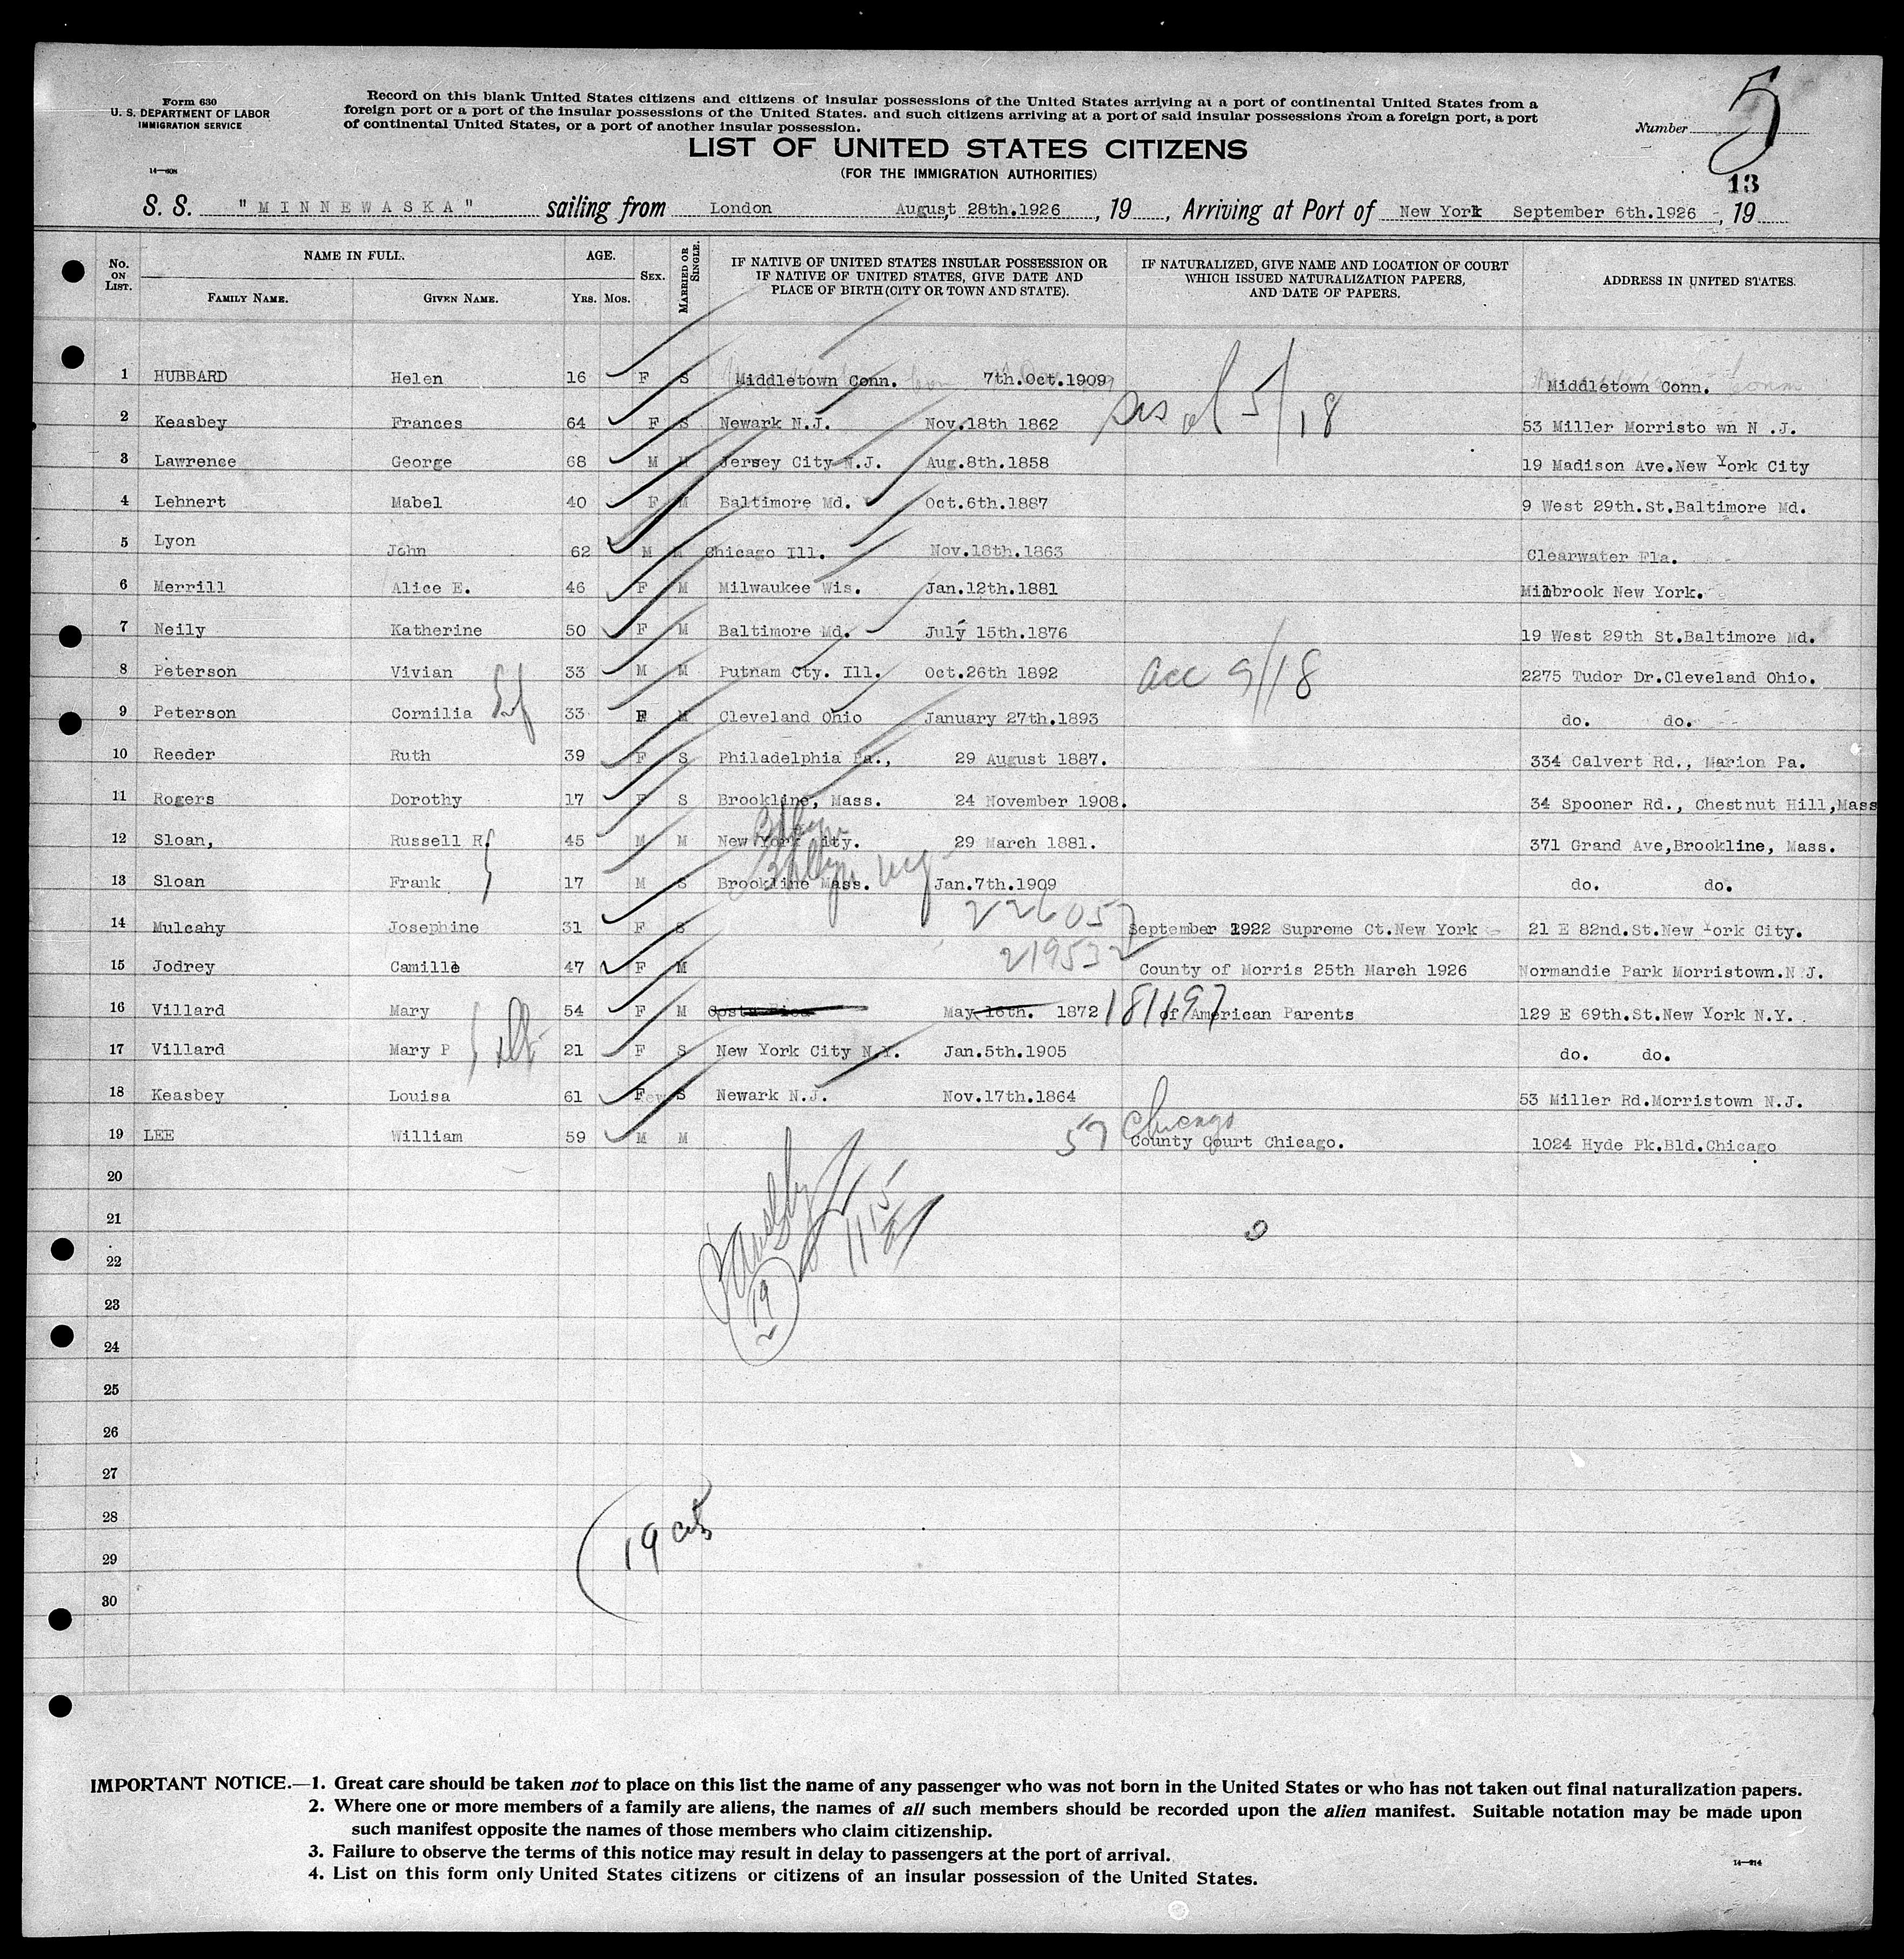 Form 630
U. S. DEPARTMENT OF LABOR
IMMIGRATION SERVICE
14—608
Record on this blank United States citizens and citizens of insular possessions of the United States arriving at a port of continental United States from a
foreign port or a port of the insular possessions of the United States. and such citizens arriving at a port of said insular possessions from a foreign port, a port
of continental United States, or a port of another insular possession.
Number 5
LIST OF UNITED STATES CITIZENS
(FOR THE IMMIGRATION AUTHORITIES)
13
S. S. "MINNEWASKA" sailing from London August, 28th.1926 , 19 , Arriving at Port of New York September 6th.1926 , 19
No. ON LIST. NAME IN FULL. FAMILY NAME. GIVEN NAME. AGE. YRS. MOS. SEX. MARRIED OR SINGLE. IF NATIVE OF UNITED STATES INSULAR POSSESSION OR IF NATIVE OF UNITED STATES, GIVE DATE AND PLACE OF BIRTH (CITY OR TOWN AND STATE). IF NATURALIZED, GIVE NAME AND LOCATION OF COURT WHICH ISSUED NATURALIZATION PAPERS, AND DATE OF PAPERS. ADDRESS IN UNITED STATES.
1 HUBBARD Helen 16 F S Middletown Conn. 7th.Oct.1909 Middletown Conn.
2 Keasbey Frances 64 F S Newark N.J. Nov.18th 1862 5/18 53 Miller Morristo wn N .J.
3 Lawrence George 68 M M Jersey City N.J. Aug.8th.1858 19 Madison Ave.New York City
4 Lehnert Mabel 40 F M Baltimore Md. Oct.6th.1887 9 West 29th.St.Baltimore Md.
5 Lyon John 62 M M Chicago Ill. Nov.18th.1863 Clearwater Fla.
6 Merrill Alice E. 46 F M Milwaukee Wis. Jan.12th.1881 Millbrook New York.
7 Neily Katherine 50 F M Baltimore Md. July 15th.1876 19 West 29th St.Baltimore Md.
8 Peterson Vivian 33 M M Putnam Cty. Ill. Oct.26th 1892 acc 9/18 2275 Tudor Dr.Cleveland Ohio.
9 Peterson Cornilia 33 F M Cleveland Ohio January 27th.1893 do. do.
10 Reeder Ruth 39 F S Philadelphia Pa., 29 August 1887. 334 Calvert Rd., Marion Pa.
11 Rogers Dorothy 17 F S Brookline, Mass. 24 November 1908. 34 Spooner Rd., Chestnut Hill,Mass
12 Sloan, Russell R. 45 M M New York City. 29 March 1881. 371 Grand Ave,Brookline, Mass.
13 Sloan Frank 17 M S Brookline Mass. Jan.7th.1909 do. do.
14 Mulcahy Josephine 31 F S 226057 September 1922 Supreme Ct.New York 21 E 82nd.St.New York City.
15 Jodrey Camille 47 F M 219532 County of Morris 25th March 1926 Normandie Park Morristown.N J.
16 Villard Mary 54 F M Costa Rica May 16th. 1872 181197 of American Parents 129 E 69th.St.New York N.Y.
17 Villard Mary P 21 F S New York City N.Y. Jan.5th.1905 do. do.
18 Keasbey Louisa 61 F S Newark N.J. Nov.17th.1864 53 Miller Rd.Morristown N.J.
Chicago
19 LEE William 59 M M 57 County Court Chicago. 1024 Hyde Pk.Bld.Chicago
20
21
22
23
19
24
25
26
27
28
19 cits
29
30
IMPORTANT NOTICE.—1. Great care should be taken not to place on this list the name of any passenger who was not born in the United States or who has not taken out final naturalization papers.
2. Where one or more members of a family are aliens, the names of all such members should be recorded upon the alien manifest. Suitable notation may be made upon
such manifest opposite the names of those members who claim citizenship.
3. Failure to observe the terms of this notice may result in delay to passengers at the port of arrival.
4. List on this form only United States citizens or citizens of an insular possession of the United States.
14—914